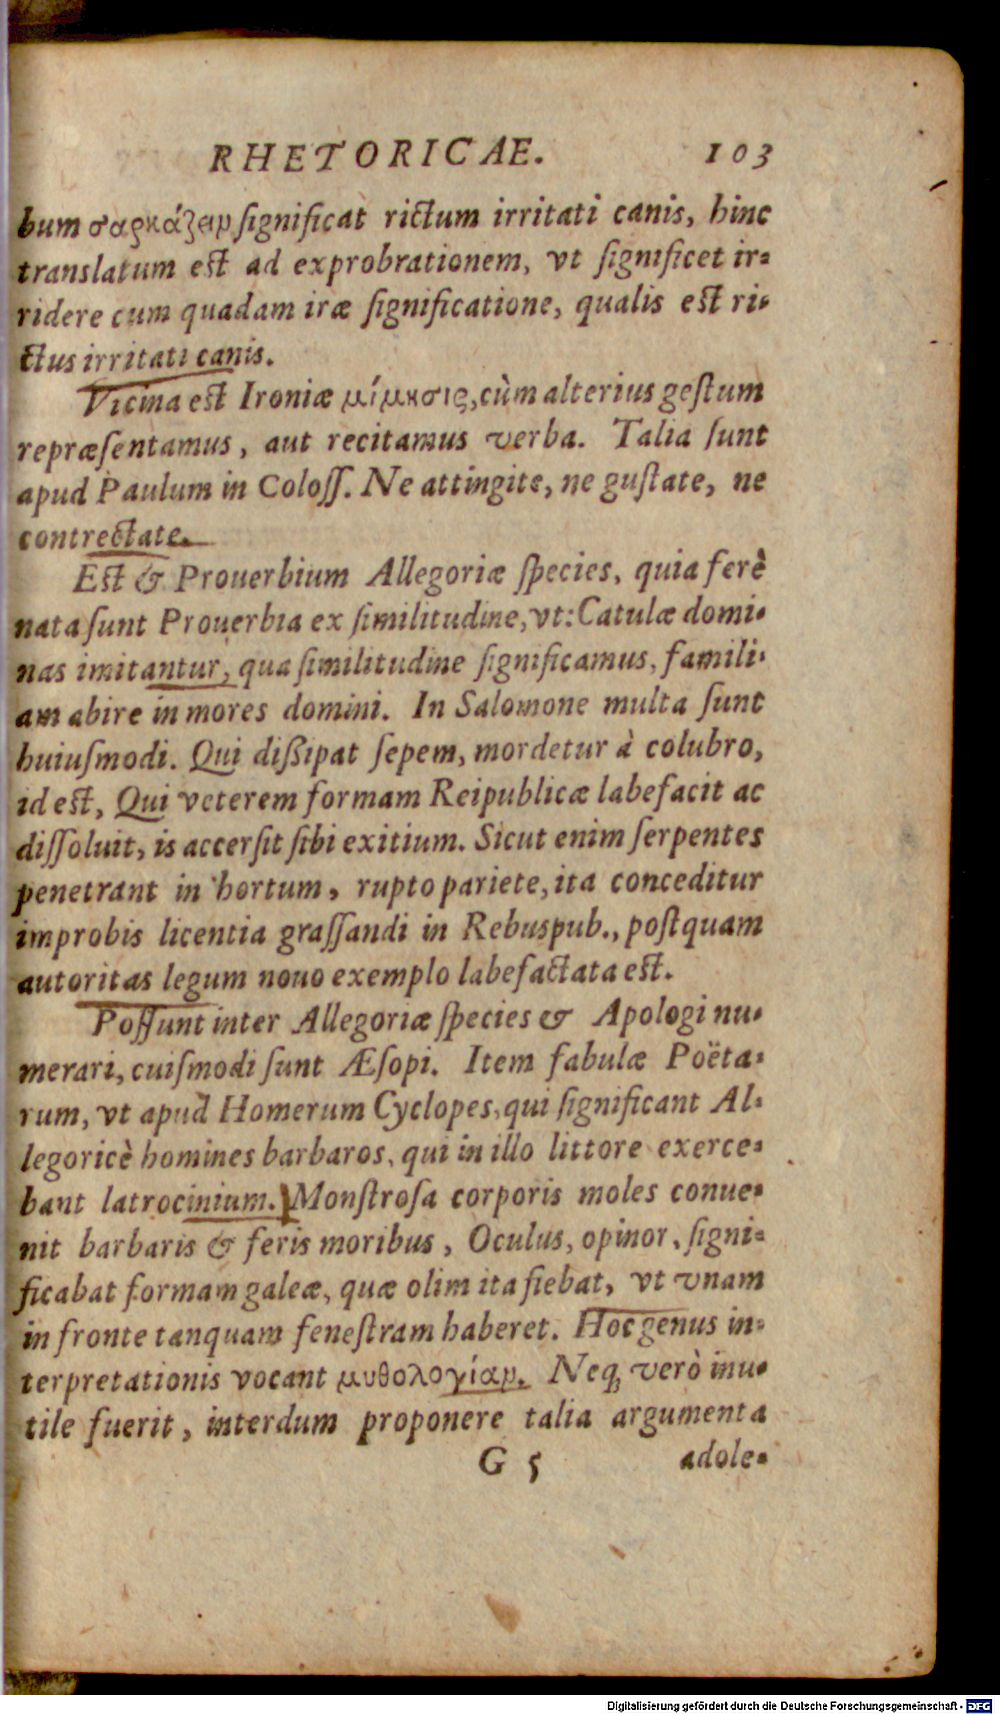 RHETORICAE. 103
bum σαρκάζειν ſignificat rictum irritati canis, hinc
translatum eſt ad exprobrationem, vt ſignificet ir-
ridere cum quadam iræ ſignificatione, qualis eſt ri-
ctus irritati canis.
Vicina eſt Ironiæ μίμησις, cùm alterius geſtum
repræſentamus, aut recitamus verba. Talia ſunt
apud Paulum in Coloſſ. Ne attingite, ne guſtate, ne
contrectate.
Eſt & Prouerbium Allegoriæ ſpecies, quia ferè
nata ſunt Prouerbia ex ſimilitudine, vt: Catulæ domi-
nas imitantur, qua ſimilitudine ſignificamus, famili-
am abire in mores domini. In Salomone multa ſunt
huiuſmodi. Qui dißipat ſepem, mordetur à colubro,
id eſt, Qui veterem formam Reipublicæ labefacit ac
diſſoluit, is accerſit ſibi exitium. Sicut enim ſerpentes
penetrant in hortum, rupto pariete, ita conceditur
improbis licentia graſſandi in Rebuspub., poſtquam
autoritas legum nouo exemplo labefactata eſt.
Poſſunt inter Allegoriæ ſpecies & Apologi nu-
merari, cuiſmodi ſunt Æſopi. Item fabulæ Poëta-
rum, vt apud Homerum Cyclopes, qui ſignificant Al-
legoricè homines barbaros, qui in illo littore exerce-
bant latrocinium. Monſtroſa corporis moles conue-
nit barbaris & feris moribus, Oculus, opinor, ſigni-
ficabat formam galeæ, quæ olim ita fiebat, vt vnam
in fronte tanquam feneſtram haberet. Hoc genus in-
terpretationis vocant μυθολογίαν. Neq́; verò inu-
tile fuerit, interdum proponere talia argumenta
G 5 adole-
Digitalisierung gefördert durch die Deutsche Forschungsgemeinschaft - DFG